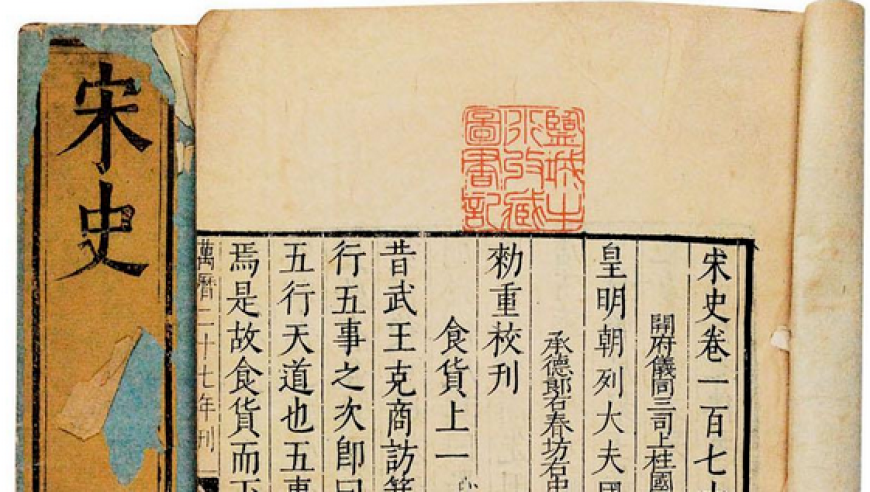 宋史
鹽城
收藏
圖書記
宋史卷一百七十
開府儀同三司上柱國
皇明朝列大夫國
承德郎右春坊右中
勑重校刊
食貨上一
昔武王克商訪箕
行五事之次卽曰
五行天道也五事
焉是故食貨而下
萬曆二十七年刊